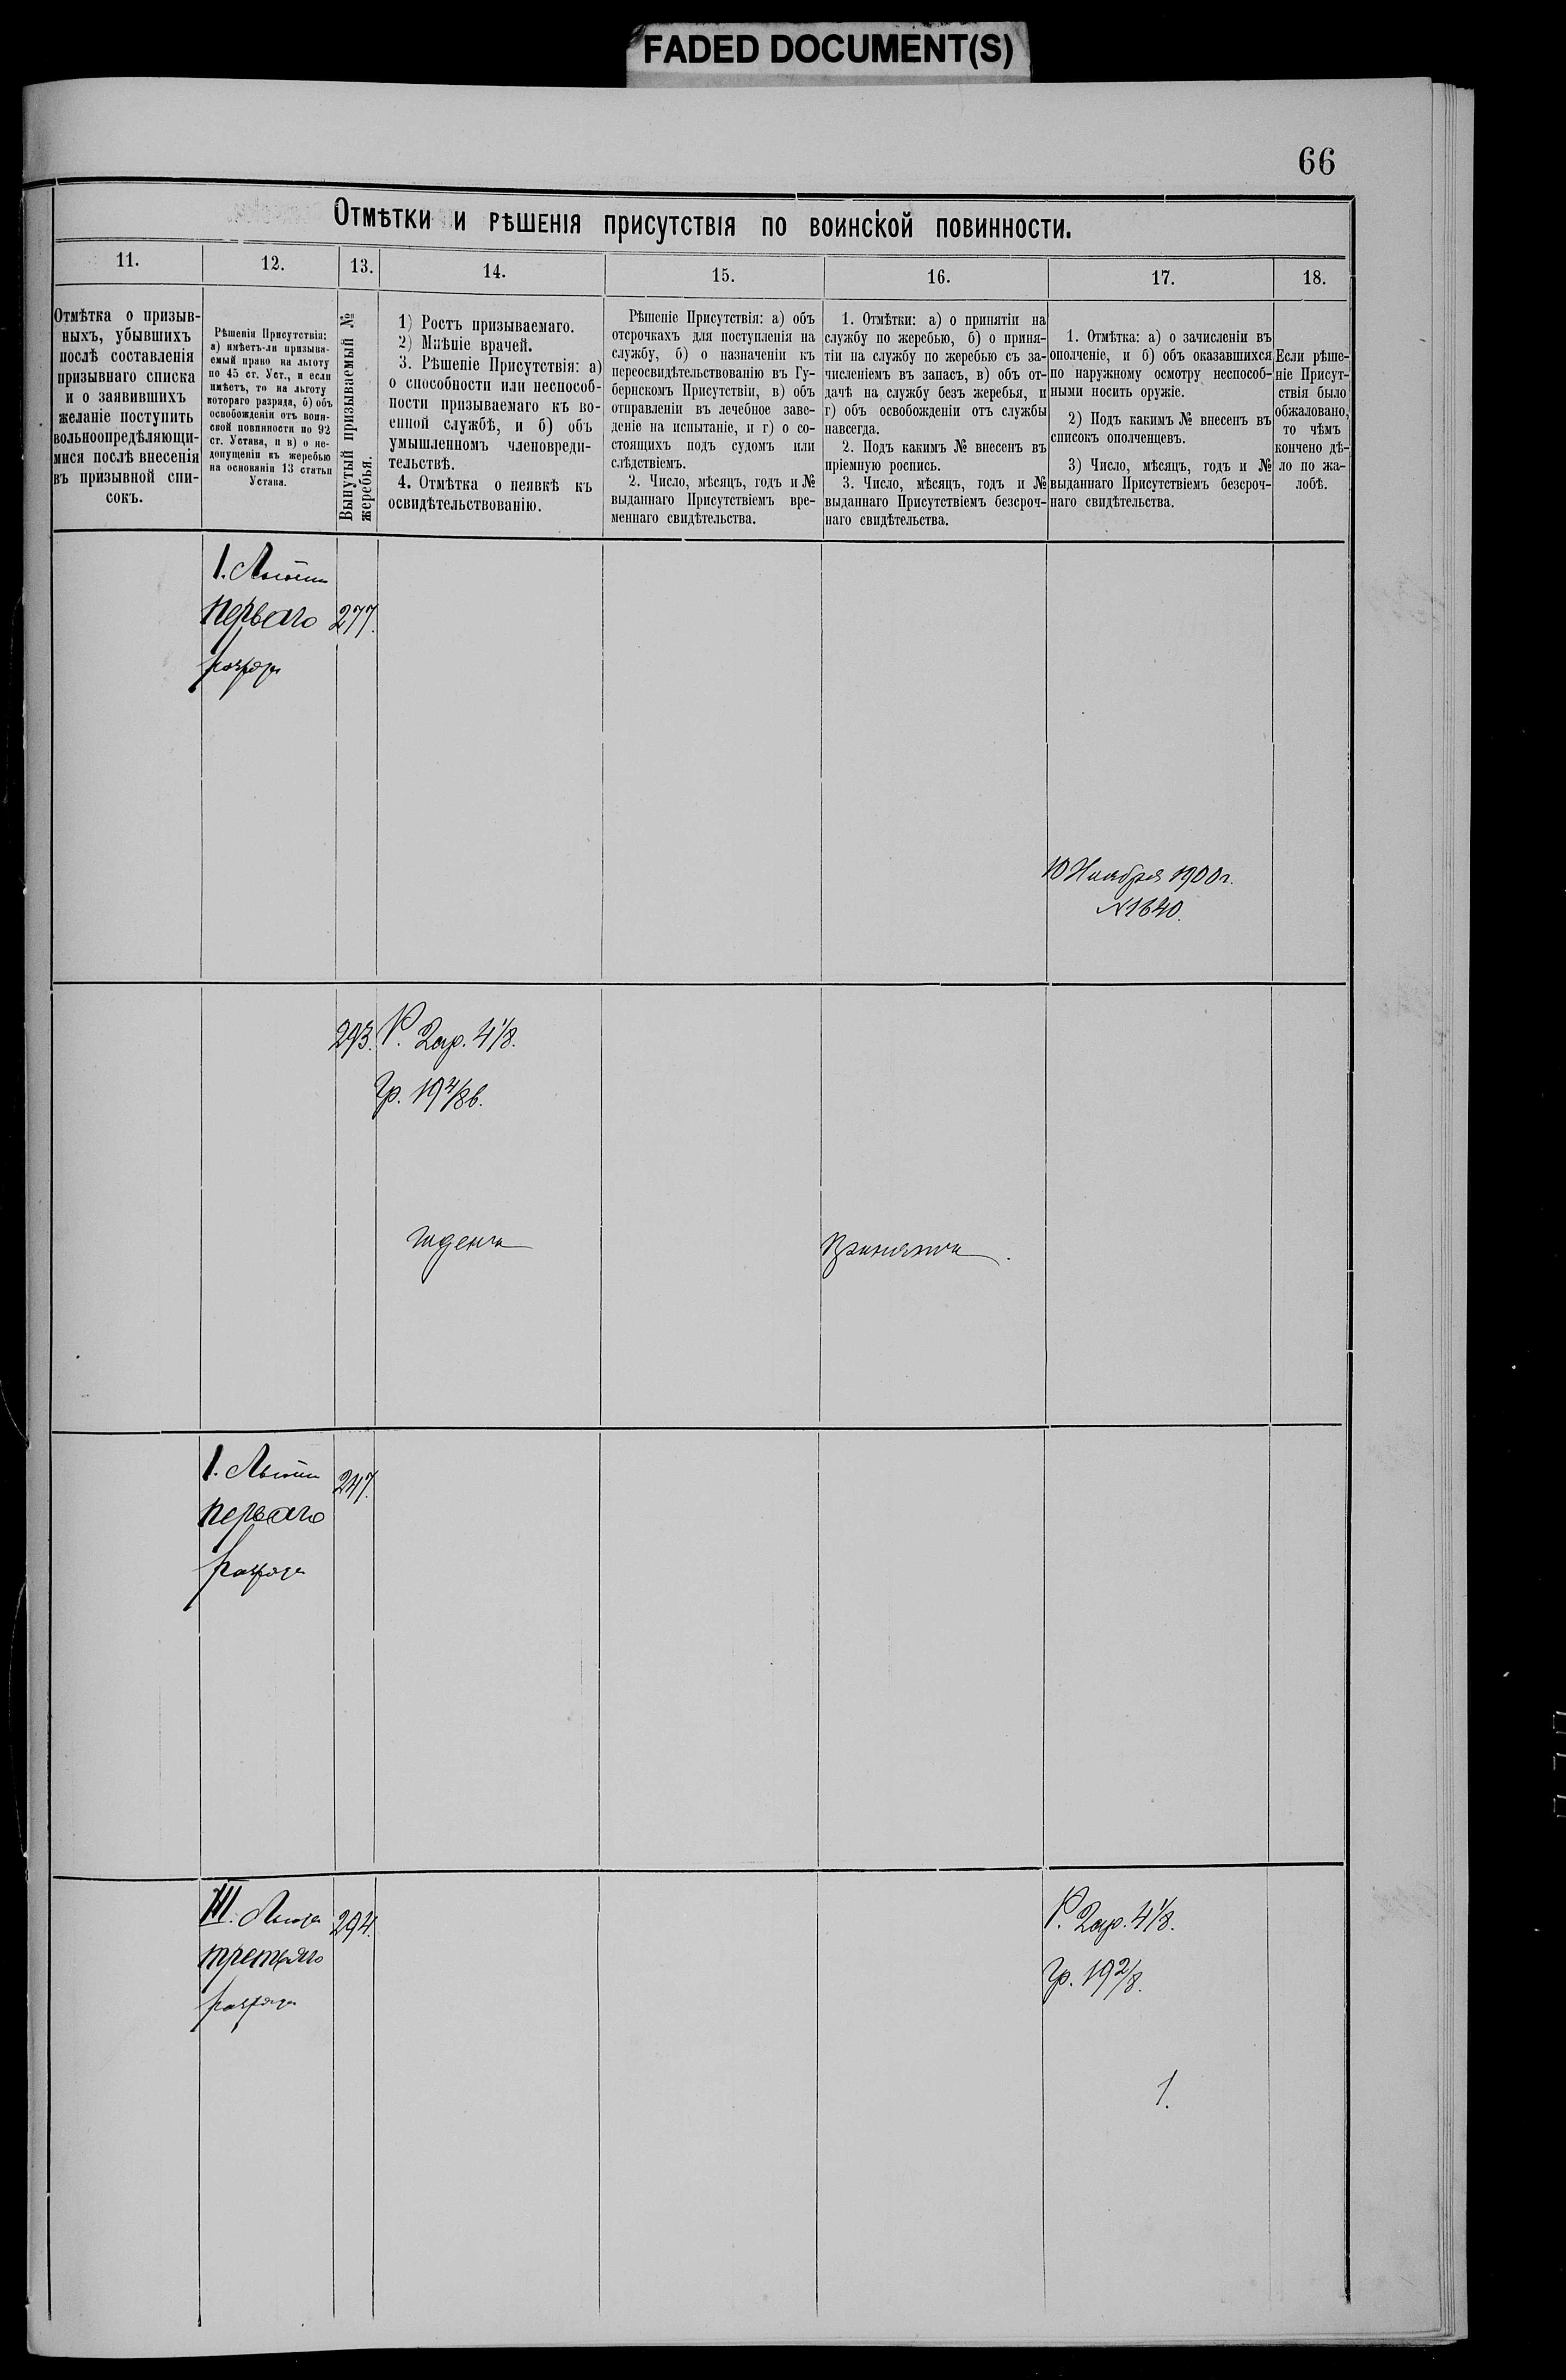 FADED DOCUMENT(S)
66
Отмѣтки и рѣшенія присутствія по воинской повинности.
11. 12. 13. 14. 15. 16. 17. 18.
Отмѣтка о призыв-
ныхъ, убывшихъ
послѣ составленія
призывнаго списка
и о заявившихъ
желаніе поступить
вольноопредѣляющи-
мися послѣ внесенія
въ призывной спи-
сокъ.
Рѣшенія Присутствія:
а) имѣетъ-ли призыва-
емый право на льготу
по 45 ст. Уст., и если
имѣетъ, то на льготу
котораго разряда, б) объ
освобожденіи отъ воин-
ской повинности по 92
ст. Устава, и в) о не-
допущеніи къ жеребью
на основаніи 13 статьи
Устава.
Вынутый призываемый №
жеребья.
1) Ростъ призываемаго.
2) Мнѣніе врачей.
3. Рѣшеніе Присутствія: а)
о способности или неспособ-
ности призываемаго къ во-
енной службѣ, и б) объ
умышленномъ членовреди-
тельствѣ.
4. Отмѣтка о неявкѣ къ
освидѣтельствованію.
Рѣшеніе Присутствія: а) объ
отсрочкахъ для поступленія на
службу, б) о назначеніи къ
переосвидѣтельствованію въ Гу-
бернскомъ Присутствіи, в) объ
отправленіи въ лечебное заве-
деніе на испытаніе, и г) о со-
стоящихъ подъ судомъ или
слѣдствіемъ.
2. Число, мѣсяцъ, годъ и №
выданнаго Присутствіемъ вре-
меннаго свидѣтельства.
1. Отмѣтки: а) о принятіи на
службу по жеребью, б) о приня-
тіи на службу по жеребью съ за-
численіемъ въ запасъ, в) объ от-
дачѣ на службу безъ жеребья, и
г) объ освобожденіи отъ службы
навсегда.
2. Подъ какимъ № внесенъ въ
пріемную роспись.
3. Число, мѣсяцъ, годъ и №
выданнаго Присутствіемъ безсроч-
наго свидѣтельства.
1. Отмѣтка: а) о зачисленіи въ
ополченіе, и б) объ оказавшихся
по наружному осмотру неспособ-
ными носить оружіе.
2) Подъ какимъ № внесенъ въ
списокъ ополченцевъ.
3) Число, мѣсяцъ, годъ и №
выданнаго Присутствіемъ безсроч-
наго свидѣтельства.
Если рѣше-
ніе Присут-
ствія было
обжаловано,
то чѣмъ
кончено дѣ-
ло по жа-
лобѣ.
I. Льготы
перваго 277.
разряда
10 Ноября 1900 г.
№1640.
293. Р. 2 ар. 4 1/8.
Гр. 19 4/8 в.
годенъ
принятъ.
I. Льготы 247.
перваго
разряда
III. Льгота 294. Р. 2 ар. 4 1/8.
третьяго Гр. 19 2/8.
разряда
1.